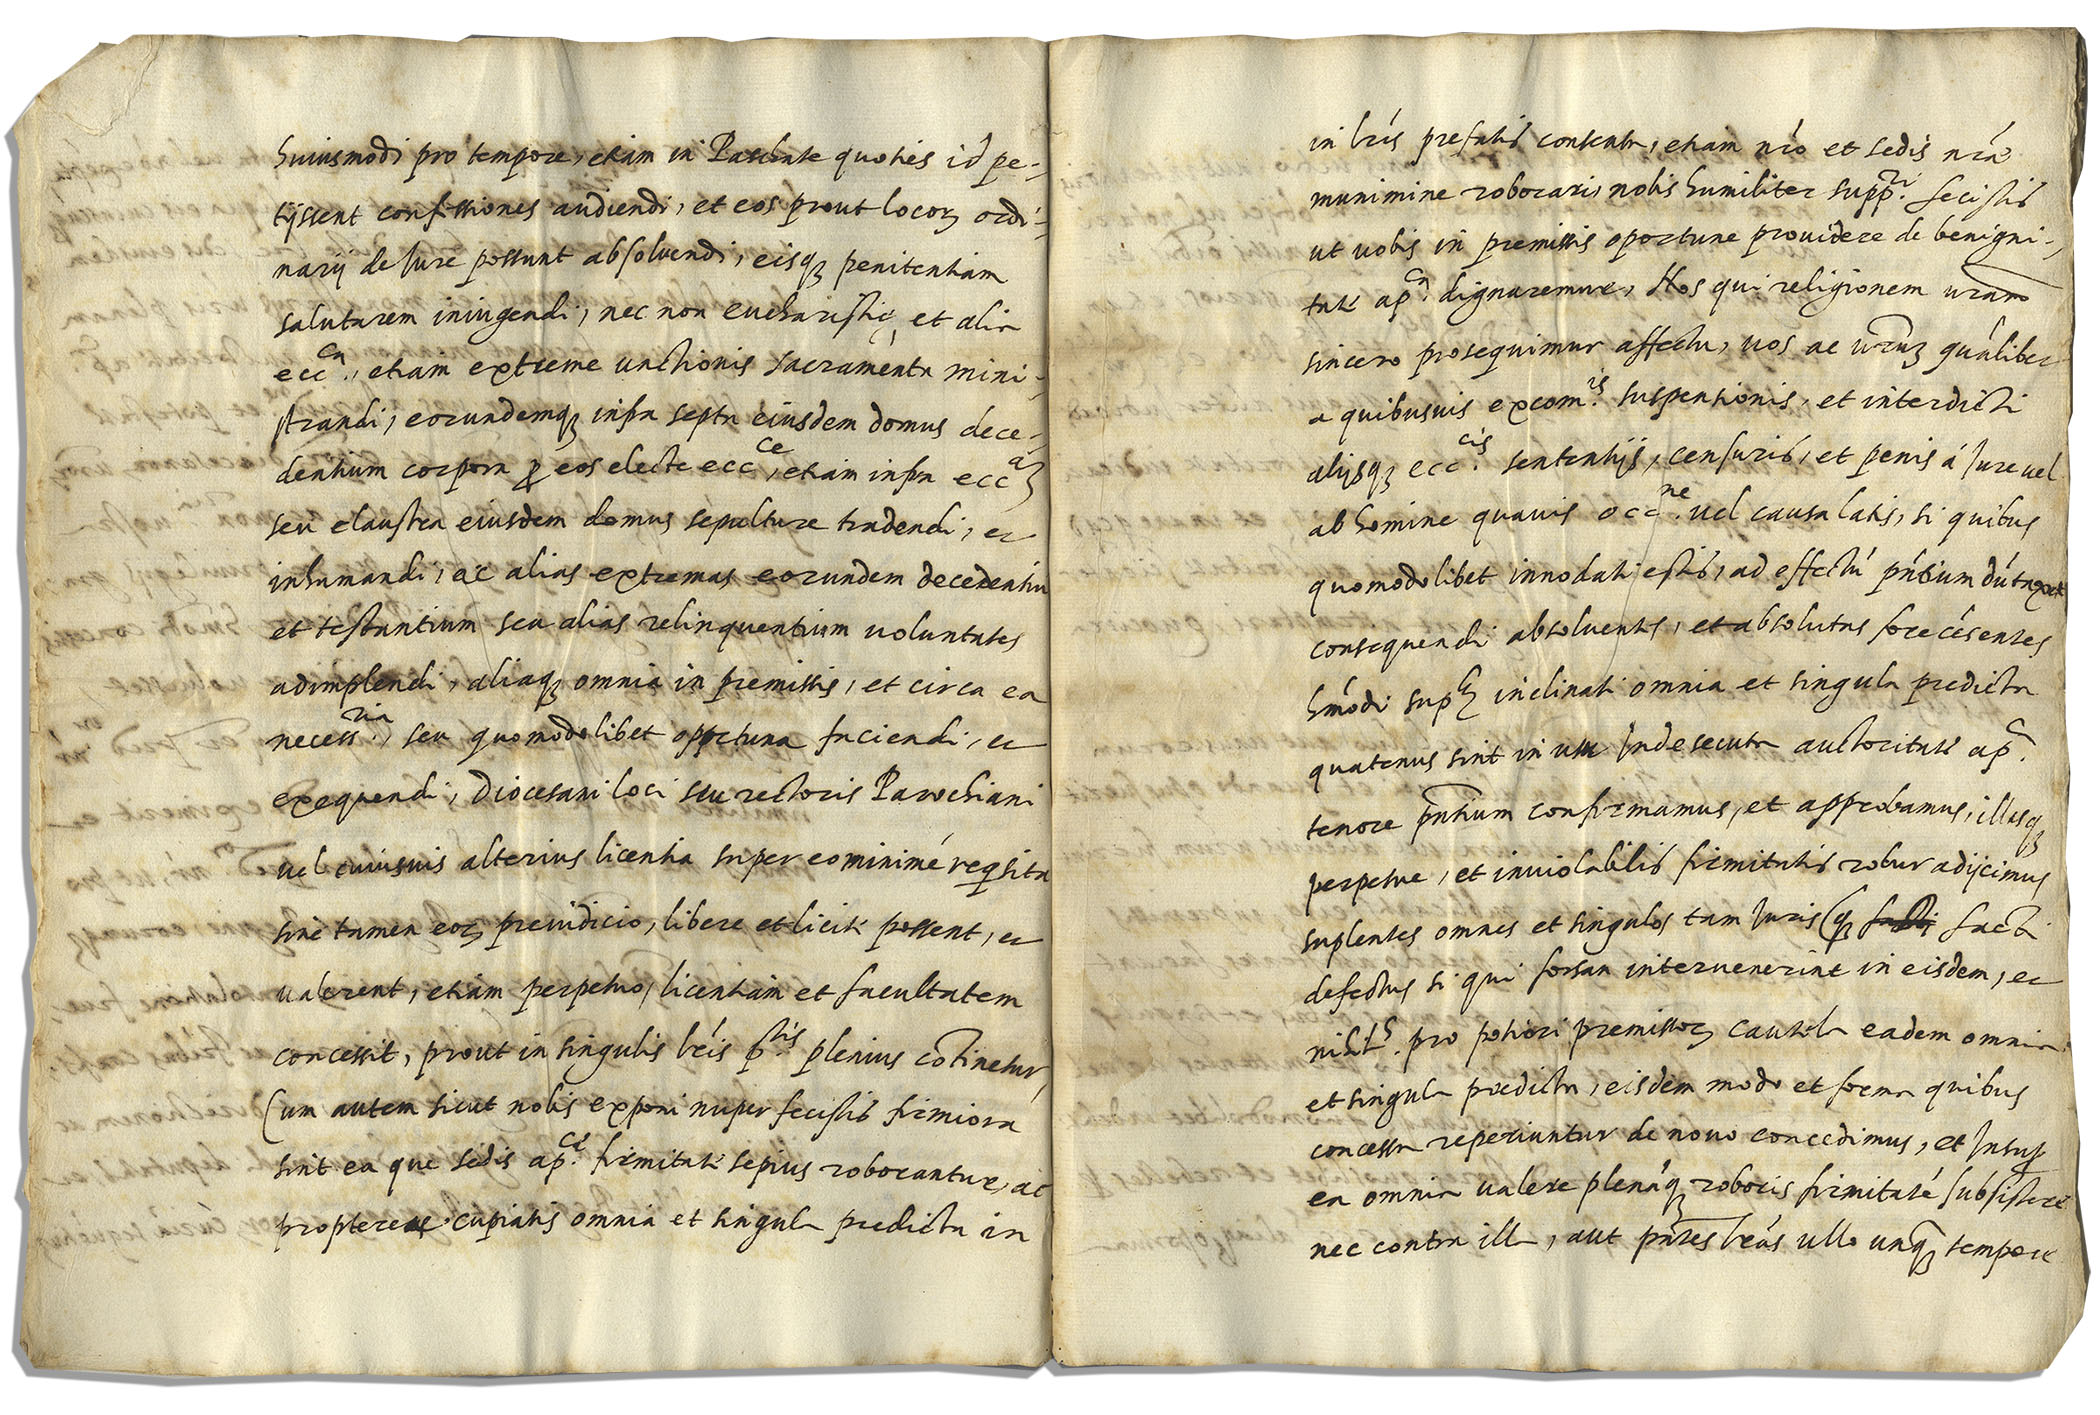 huiusmodi pro tempore, etiam in Paschate quoties id pe-
tijssent confessiones audiendi, et eos prout locoꝝ ordi-
narij de Jure possunt absoluendi, eisqꝫ penitentiam
salutarem iniugendi, nec non eucharistię, et alia
ecc.ca, etiam extreme unctionis sacramenta mini-
strandi, eorundemqꝫ infra septa eiusdem domus dece-
dentium corpora ꝓ eos electe ecc.ce, etiam infra ecc.aꝫ
seu claustra eiusdem domus sepulture tradendi, et
inhumandi, ac alias extremas eorundem decedentiu
et testantium seu alias relinquentium voluntates
adimplendi, aliaqꝫ omnia in p̱remissis, et circa ea
necess.ria, seu quomodolibet opportuna faciendi, et
exequendi, Diocesani loci seu rectoris Parochiani
uel cuiusuis alterius licentia super eo minimé reqsita
sine tamen eoꝝ preiudicio, libere et licitè possent, et
ualerent, etiam perpetuo, licentiam et facultatem
concessit, prout in singulis lr̃is p.tis plenius cõtinetur,
Cum autem sicut nobis exponi nuper fecistis firmiora
sint ea que sedis ap.ce firmitate sepius roborantur, ac
propterea cupiatis omnia et singula predicta in
in lr̃is prefatis contenta, etiam nr̃o et sedis nr̃ę
munimine roborari, nobis humiliter supp.ri fecistis
ut uobis in premissis oportune prouidere de benigni-
tate ap.ca dignaremur, Nos qui religionem ur̃am
sincero prosequimur affectu, uos ac ur̃uꝫ quálibet
a quibusuis excom.is suspensionis, et interdicti
alijsqꝫ ecc.cis sententijs, censuris, et penis á Jure uel
ab homine quauis occ.ne uel causa latis, si quibus
quomodolibet innodati estis, ad effectũ pñtium dũtaxat
consequendi absoluentes, et absolutas fore cẽsentes
hmõdi sup inclinati omnia et singula predicta
quatenus sint in usu Inde secuta auctoritate ap.ca
tenore pñtium confirmamus, et approbamus, illasqꝫ
perpetue, et inuiolabilis firmitatis robur adijcimus
suplentes omnes et singulos tam Juris qꝫ facti
defectus si qui forsan interuenerint in eisdem, et
nihils. pro potiori premissoꝝ cautela eadem omnia
et singula predicta, eisdem modo et forma quibus
concessa reperiuntur de nouo concedimus, et Insup
ea omnia ualere plenáqꝫ roboris firmitatẽ subsistere
nec contra illa, aut pñtes lr̃as ullo unqꝫ tempore